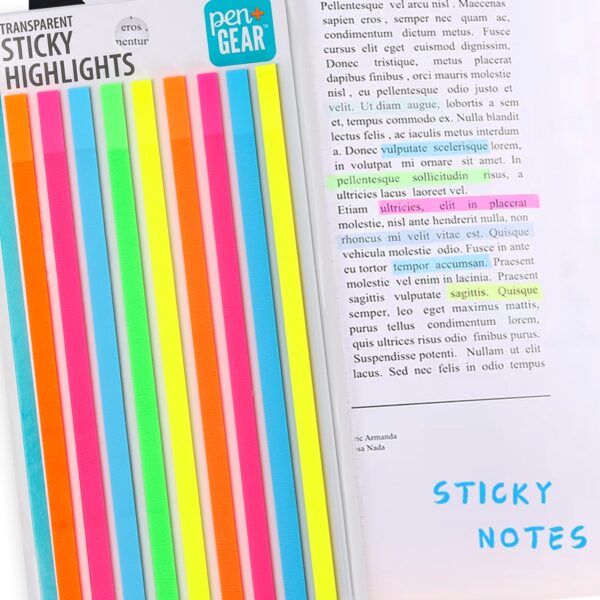 TRANSPARENT
STICKY
HIGHLIGHTS
eros ,
mentur
pen+
GEAR™
Pellentesque vel arcu nisl . Maecenas
sapien eros , semper nec quam ac,
condimentum dictum metus. Fusce
cursus elit eget euismod dignissim,
Donec tristique, metus placerat
dapibus finibus , orci mauris molestie
nisl , eu pellentesque odio justo et
velit. Ut diam augue, lobortis a sem
et, tempus commodo ex. Nulla blandit
lectus felis , ac iaculis metus interdum
a. Donec vulputate scelerisque lorem,
in volutpat mi ornare sit amet. In
pellentesque sollicitudin risus, a
ultricies lacus laoreet vel.
Etiam ultricies, elit in placerat
molestie, nisl ante hendrerit nulla, non
rhoncus mi velit vitae est. Quisque
vehicula molestie odio. Fusce in ante
eu tortor tempor accumsan. Praesent
molestie vel enim in lacinia. Praesent
sagittis vulputate sagittis. Quisque
semper, leo eget maximus mattis,
purus tellus condimentum lorem,
quis ultrices risus odio finibus purus.
Suspendisse potenti. Nullam ut elit
lacus. Sed nec felis in odio tempus
ric Armanda
sa Nada
STICKY
NOTES